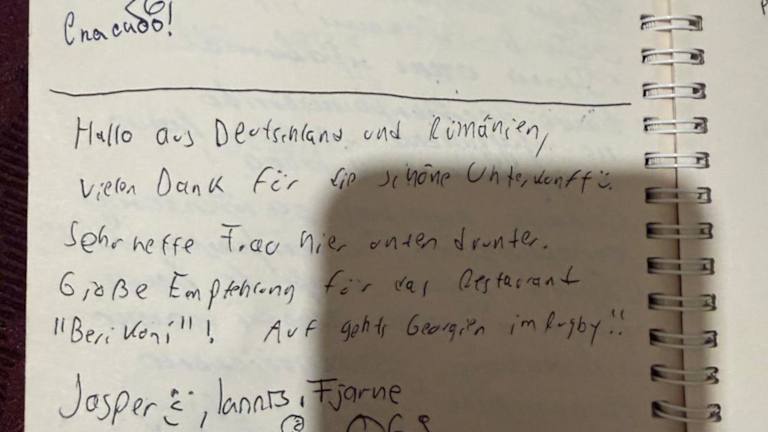 Спасибо!
Hallo aus Deutschland und Rumänien,
vielen Dank für die schöne Unterkunft :).
Sehr nette Frau hier unten drunter.
Große Empfehlung für das Restaurant
"Berikoni"! Auf gehts Georgien im Rugby!!
Jasper :), Iannis, Fjarne